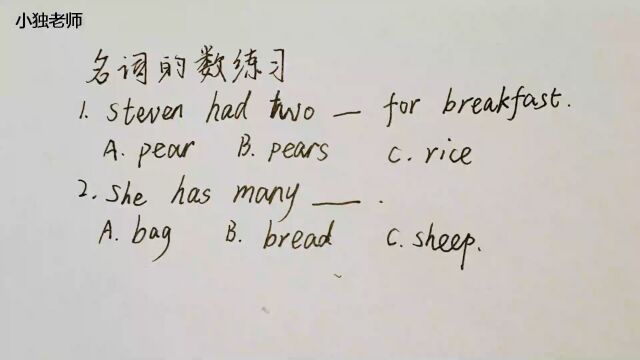 小独老师
名词的数练习
1. Steven had two — for breakfast.
A. pear B. pears C. rice
2. She has many —.
A. bag B. bread C. sheep.